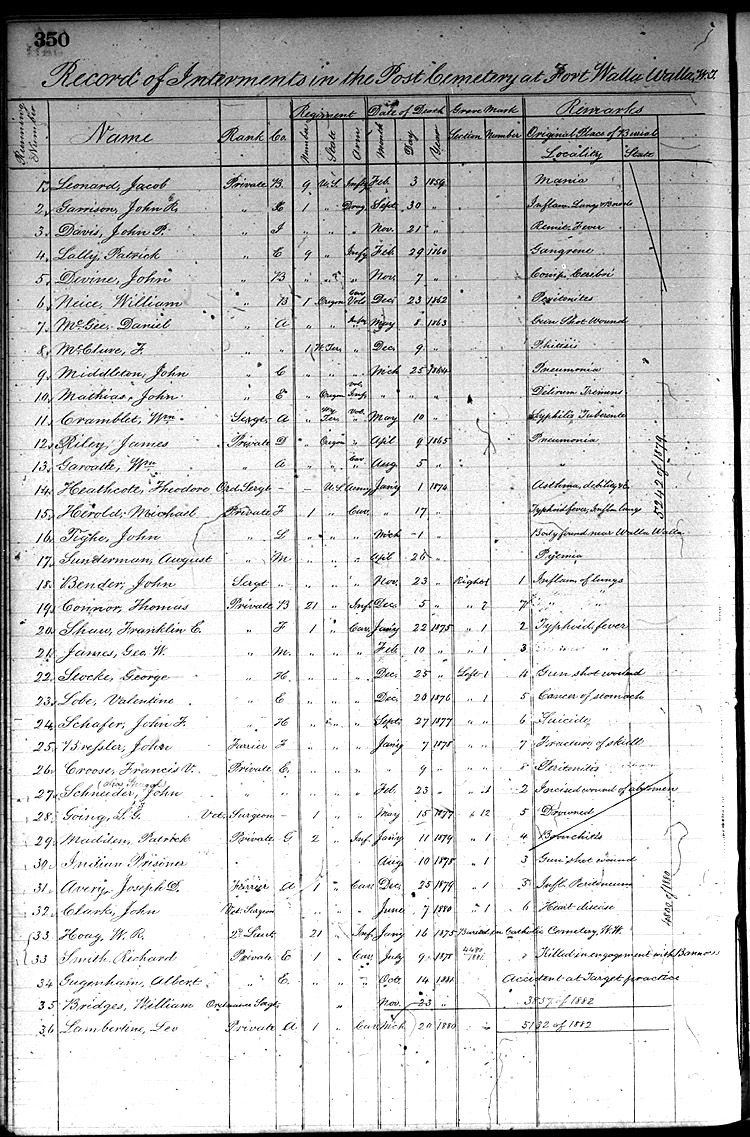 350
Record of Interments in the Post Cemetery at Fort Walla Walla, W.T.
Running Number Name Rank Co. Regiment Date of Death Grave Mark Remarks
Number State Arm Month Day Year Section Number Original Place of Burial
Locality State
1, Leonard, Jacob Private B. 9 U.S. Infy Feb. 3 1859 Mania
2, Garrison, John R. " 1 " Drag. Sept. 30 " Inflam. Lungs
3, Davis, John P. " I " " Nov. 21 " Remit. Fever
4, Lally, Patrick " C 9 " Infy Feb. 29 1860 Gangrene
5, Divine, John " B " " " Nov. 7 " Comp. Cerebri
6, Neice, William " B 1 Oregon Cav Vols Dec. 23 1862 Peritenites
7, McGee, Daniel " A " " Infy May 8 1863 Gun Shot Wound
8, McClure, F. " " 1 W. Ter. " Dec. 9 " Phitsis
9, Middleton, John " C " " " Mch 25 1864 Pneumonia
10, Mathias, John " E " Oregon vol. Inf. " " " Delirem Tremens
11, Cramblet, Wm Sergt. A " Ter. Vol. May 10 " Syphilis
12, Riley, James Private D " Oregon " Apil 9 1865 Pneumonia
13, Garoatte, Wm " A " " Cav Aug 5 " "
14, Heathcote, Theodore Ord. Sergt - - U.S. Army Jany 1 1874 Asthma, debility &c
15, Hirold, Michael Private F 1 " Cav. " 17 " Typhoid fever, Inflm lung
16, Tighe, John " L " " " Mch 1 " Body found near Walla Walla
17, Sunderman, August " M " " " Apil 26 " Pyemia
18, Bender, John Sergt " " " " Nov. 23 " Right 1 1 Inflam of lungs
19, Connor, Thomas Private B 21 " Inf. Dec. 5 " " 7 " "
20, Shaw, Franklin E. " F 1 " Cav. Jany 22 1875 " 1 2 Typhoid fever
21, James, Geo. W. " M. " " " Feb 10 " " 1 3 " "
22, Stocke, George " H. " " " Dec. 25 " Left 1 4 Gun shot wound
23, Lobe, Valentine " E " " " Dec. 20 1876 " 1 5 Cancer of stomach
24, Schafer, John F. " H " " " Sept. 27 1877 " " 6 Suicide
25, Bressler, John Farrier F " " " Jany 7 1878 " " 7 Fracture of skull
26, Croose, Francis V. Private E. " " " " 9 " " Peritenitis
27, Schneider, John " " " " Feb. 23 " " 1 2 Incised wound of abdomen
28, Going, Vet. Surgeon - 1 " " May 15 1877 " 12 5 Drowned
29, Madden, Patrick Private G 2 " Inf. Jany 11 1879 " 1 4 Bronchitis
30, Indian Prisoner Aug 10 1878 " 1 3 Gun shot wound
31, Avery, Joseph D. Farrier A 1 " Cav. Dec. 25 1879 " 1 5 Infl. Peritoneum
32, Clark, John Vet. Surgeon June 7 1880 " 1 6 Heart disease
33, Hoag, W. R. 2d Lieut. 21 " Inf. Jany 16 1875 Buried in Catholic Cemetery, W.W.
33, Smith, Richard Private E 1 " Cav. July 9 1878 Killed in engagement with Bannocks
34, Gugenhaim, Albert " E. " " " Oct. 14 1881 Accident at Target practice
35, Bridges, William Ordnance Sergt. " Nov. 23 " 3857 of 1882
36, Lambertine, Leo Private A 1 " Cav. Mch 20 1880 5132 of 1882
5242 of 1879
4800 of 1880